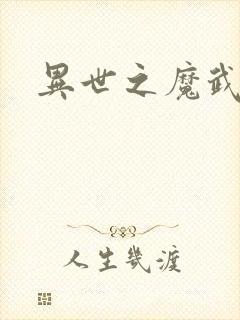 異世之魔武
人生幾渡